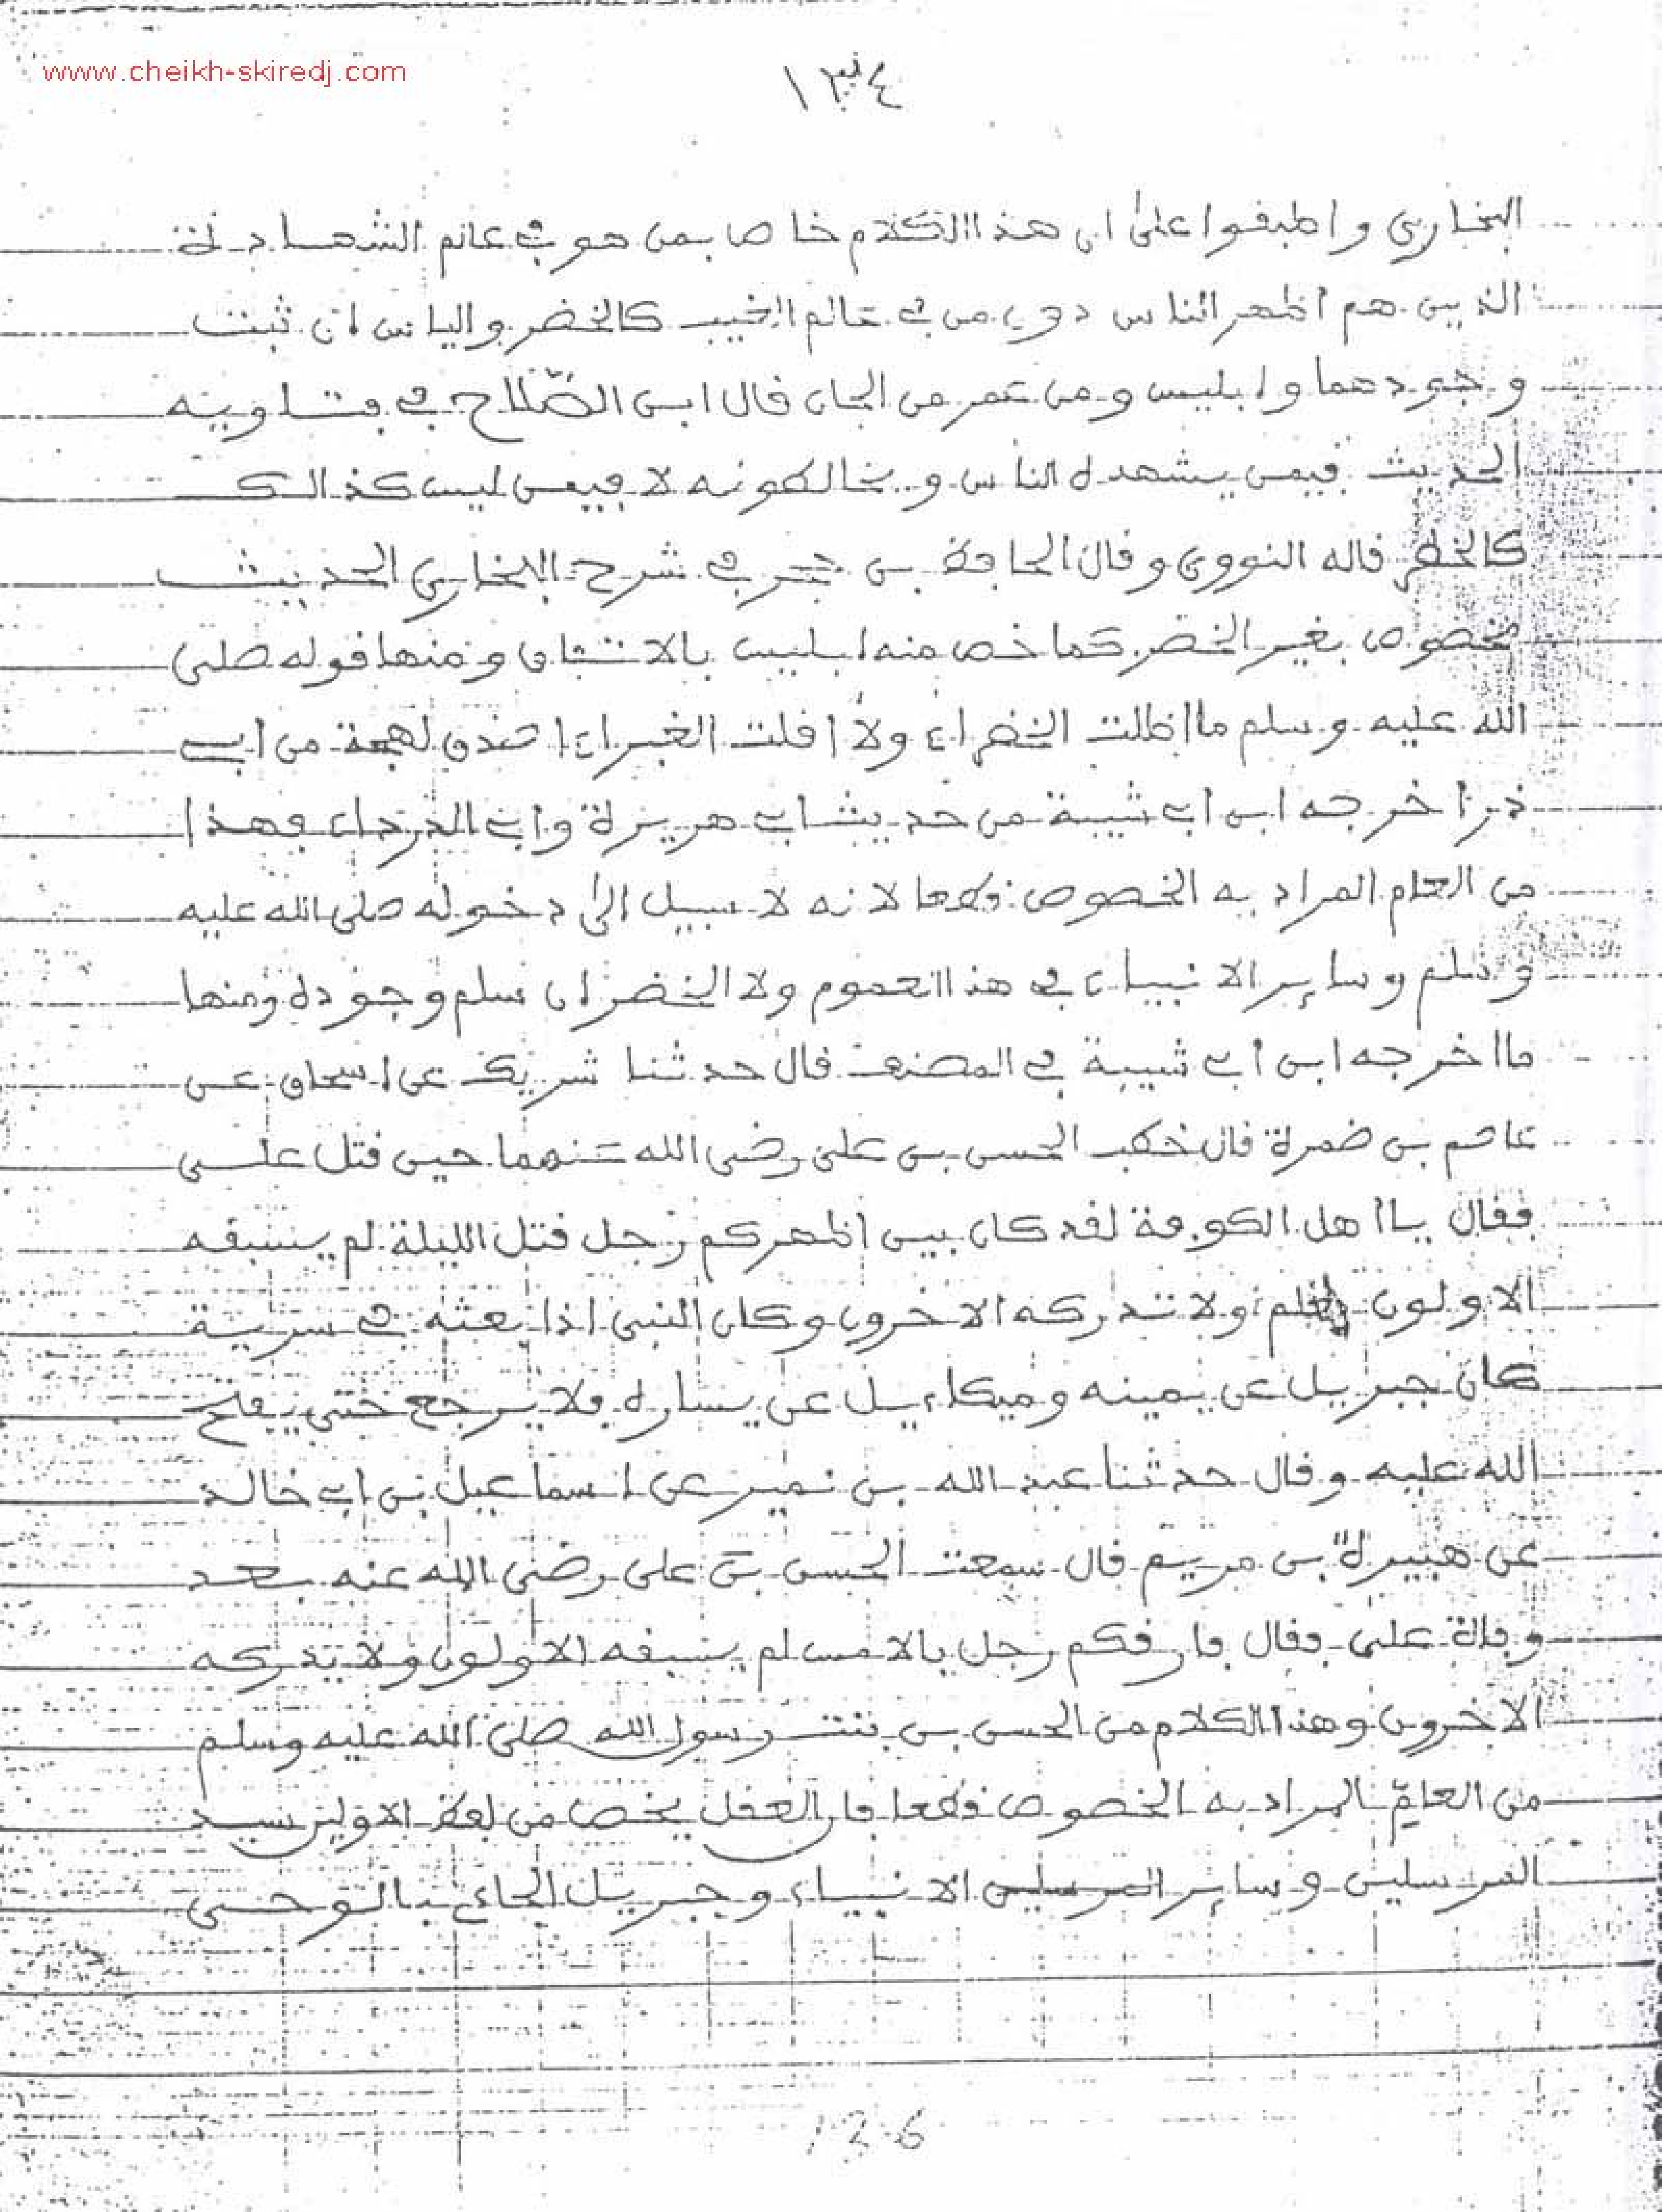 www.cheikh-skiredj.com
١٣٤
البخاري واطبقوا على ان هذا الكلام خاص بمن هو في عالم الشهادة
الذين هم اظهر الناس دون من في عالم الغيب كالخضر والياس ان ثبت
وجودهما وابليس ومن عمر من الجان قال ابن الصّلاح في فتاويه
الحديث فيمن يشهده الناس ويخالطونه لا فيمن ليس كذالك
كالخضر قاله النووي وقال الحافظ بن حجر في شرح البخاري الحديث
مخصوص بغير الخضر كما خص منه ابليس بالاتفاق ومنها قوله صلى
الله عليه وسلم ما اظلت الخضراء ولا اقلت الغبراء اصدق لهجة من ابي
ذر اخرجه ابن ابي شيبة من حديث ابي هريرة وابي الدرداء وهذا
من العام المراد به الخصوص قطعا لانه لا سبيل الى دخوله صلى الله عليه
وسلم وساير الانبياء في هذا العموم ولا الخضر ان سلم وجوده ومنها
ما اخرجه ابن ابي شيبة في المصنف قال حدثنا شريك عن اسحاق عن
عاصم بن ضمرة قال خطب الحسن بن علي رضي الله عنهما حين قتل علي
فقال يا اهل الكوفة لقد كان بين اظهركم رجل قتل الليلة لم يسبقه
الاولون بعلم ولا تدركه الاخرون وكان النبي اذا بعثه في سرية
كان جبريل عن يمينه وميكاءيل عن يساره فلا يرجع حتى يفتح
الله عليه وقال حدثنا عبد الله بن نمير عن اسماعيل بن ابي خالد
عن هبيرة بن مريم قال سمعت الحسن بن علي رضي الله عنه بعد
وفاة علي فقال فارقكم رجل بالامس لم يسبقه الاولون ولا يدركه
الاخرون وهذا الكلام من الحسن بن بنت رسول الله صلى الله عليه وسلم
من العامّ المراد به الخصوص قطعا فان العقل يخص من لفظ الاولين سيد
المرسلين وساير المرسلين الانبياء وجبريل الجاءي بالوحي
136